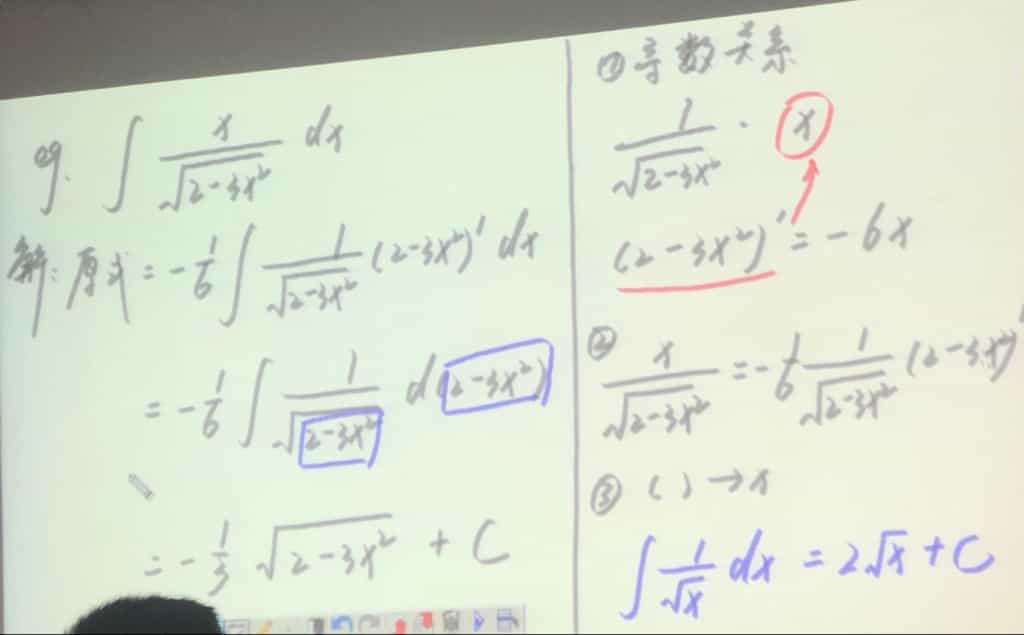 eg. ∫ x/√(2-3x²) dx
解: 原式 = -1/6 ∫ 1/√(2-3x²) (2-3x²)' dx
= -1/6 ∫ 1/√(2-3x²) d(2-3x²)
= -1/3 √(2-3x²) + C
① 导数关系
1/√(2-3x²) · x
(2-3x²)' = -6x
② x/√(2-3x²) = -1/6 1/√(2-3x²) (2-3x²)'
③ ( ) → x
∫ 1/√x dx = 2√x + C